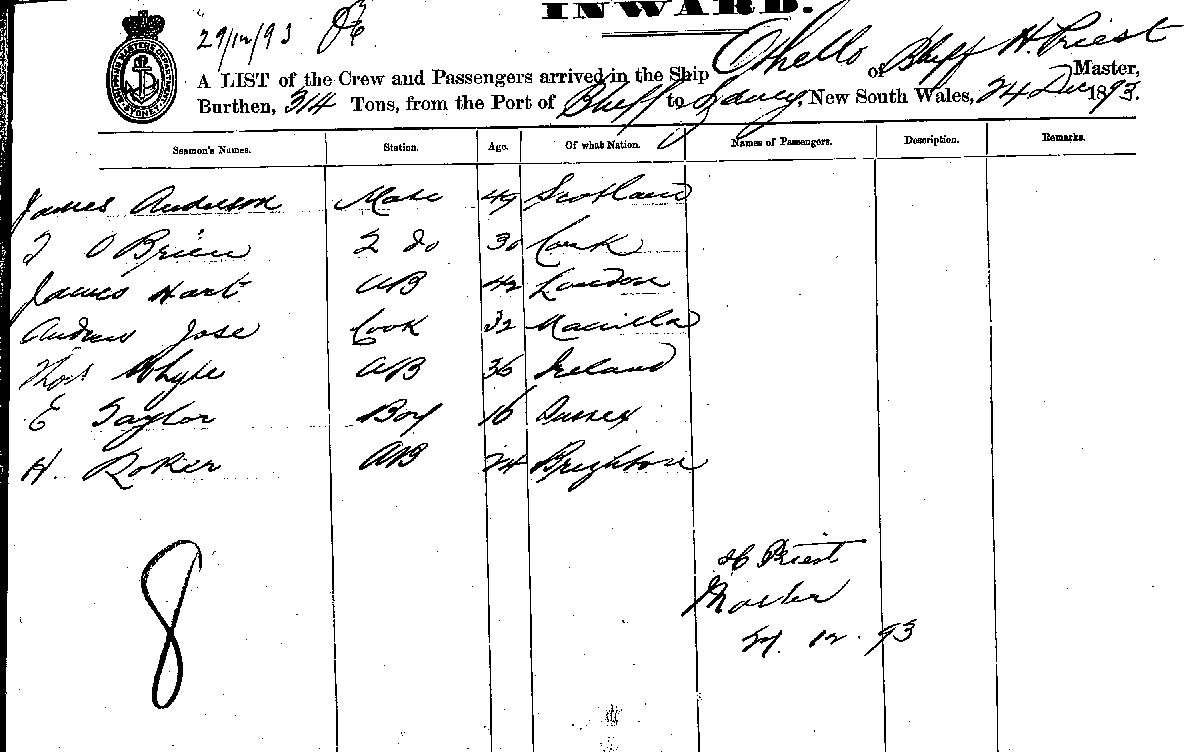 INWARD.
29/12/93
A LIST of the Crew and Passengers arrived in the Ship Othello of Bluff H. Priest Master,
Burthen, 314 Tons, from the Port of Bluff to Sydney, New South Wales, 24 Dec 1893.
Seamen's Names. Station. Age. Of what Nation. Names of Passengers. Description. Remarks.
James Anderson Mate 49 Scotland
J O'Brien 2 do 30 Cork
James Hart AB 42 London
Andrew Jose Cook 32 Manilla
Thos Whyte AB 36 Ireland
E Taylor Boy 16 Sussex
H. Roker AB 24 Brighton
8
H Priest
Master
12. 93